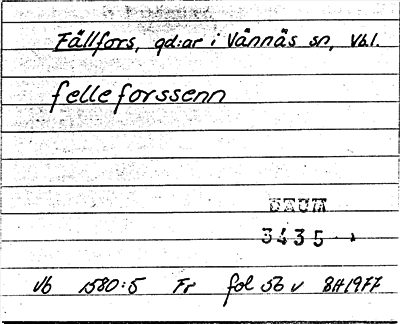 Fällfors, gd:ar i Vännäs sn, Vb.l.
felleforssenn
DAUM
3435
Vb 1580:5 Fr fol 56 v BH1977